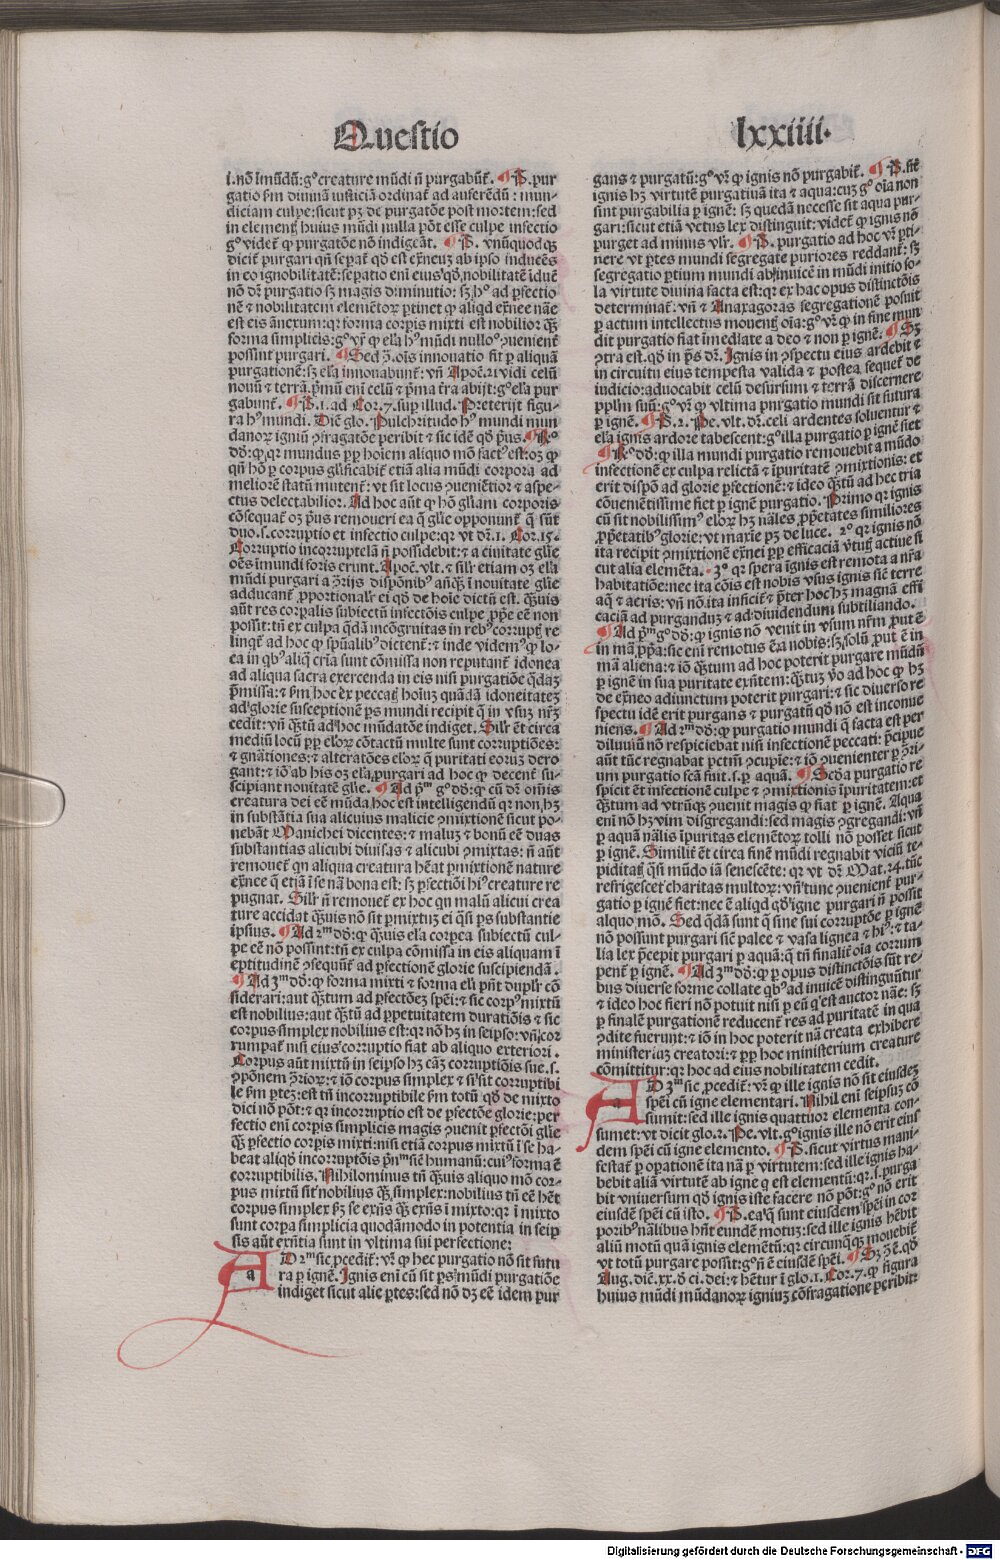 Questio
lxxiiii.
i. nō īmūdū: gº creature mūdi nō purgabūt᷑. ¶ P. pur
gatio ẜm diuinā iusticiā ordinat᷑ ad auferēdū īmun-
diciam culpe: sicut pꝫ de purgatōe post mortem: sed
in elementꝭ huius mūdi nulla pōt esse culpe infectio
gº videt᷑ ꝙ purgatōe nō indigeāt. ¶ P. vnūquodqꝫ
dicit᷑ purgari qn̄ sepat᷑ qd̓ est extraneuꝫ ab ipso inducēs
in eo ignobilitatē: sepatio enī eius qd̓ nobilitatē iducit
nō dr̄ purgatio sꝫ magis diminutio: sꝫ hº ad pfectio
nē & nobilitatem elemētoꝝ ptinet ꝙ aliqd extranee nāe
est eis ānexum: qꝛ forma corpis mixti est nobilior q̄ꝫ
forma simplicis: gº vr̄ ꝙ elā hº mūdi nulloº ꝯuenient᷑
possint purgari. ¶ Sed ꝯ. oīs innouatio fit p aliquā
purgationē: sꝫ elā innouabunt᷑: vn̄ Apoc̄. 21 vidi celū
nouū & terrā. pmū enī celū & pma tra abijt: gº ela pur
gabunt᷑. ¶ P. 1. ad Cor. 7. sup illud. Preterijt figu-
ra hº mundi. Dic̄ glo. Pulchritudo hº mundi mun
danoꝝ igniū ꝯfragatōe peribit & sic idē qd̓ pus. ¶ Rº
dd̓: ꝙ qꝛ mundus pp hoiem aliquo mō factº est: oꝫ ꝙ
qn̄ hō p corpus glificabit᷑ etiā alia mūdi corpora ad
meliorē statū mutent᷑: vt sit locus ꝯuenietior & aspe-
ctus delectabilior. Ad hoc aut̄ ꝙ hō gl̄iam corporis
cōsequat᷑ oꝫ pus remoueri ea q̄ glīe opponunt᷑ q̄ sūt
duo. s. corruptio et infectio culpe: qꝛ vt dr̄. 1. Cor. 15.
Corruptio incorruptelā nō possidebit: & a ciuitate glīe
oēs imundi foris erunt. Apoc̄. vlt. & silr etiam oꝫ elā
mūdi purgari a ꝯrijs dispōnibº anteqꝫ i nouitatē glīe
adducant᷑ pportionalr̄ ei qd̓ de hoīe dictū est. q̄uis
aut̄ res corpalis subiectū infectiōis culpe ppe eē non
possit: tn̄ ex culpa q̄dā incōgruitas in rebº corruptꝭ re
linqt᷑ ad hoc ꝙ spūalibº dicent᷑: & inde videmº ꝙ lo-
ca in qbº aliq̄ cria sunt cōmissa non reputant᷑ idonea
ad aliqua sacra exercenda in eis nisi purgatiōe q̄daꝫ
pmissa: & ẜm hoc ex peccatꝭ hoīuꝫ quādā idoneitateꝫ
ad glorie susceptionē ps mundi recipit q̄ in vsuꝫ nr̄ꝫ
cedit: vn̄ q̄ꝫtū ad hoc mūdatōe indiget. Silr̄ et circa
mediū locū pp eloꝝ cōtactū multe sunt corruptiōes:
& gnātiones: & alteratōes eloꝝ q̄ puritati eoruꝫ dero
gant: & iō ab his oꝫ elā purgari ad hoc ꝙ decent᷑ su-
scipiant nouitatē glīe. ¶ Ad pm gº dd̓: ꝙ cū dr̄ omīs
creatura dei eē mūda, hoc est intelligendū qꝛ non hꝫ
in substātia sua alicuius malicie ꝯmixtionē sicut po-
nebāt Manichei dicentes: & maluꝫ & bonū eē duas
substantias alicubi diuisas & alicubi ꝯmixtas: nō aut̄
remouet᷑ qn aliqua creatura heat pmixtionē nature
extranee q̄ etiā ī se nā bona est: sꝫ pfectiōi hiº creature re
pugnat. Silr̄ nō remouet᷑ ex hoc qn malū alicui crea
ture accidat q̄uis nō sit pmixtuꝫ ei q̄si ps substantie
ipsius. ¶ Ad 2m dd̓: ꝙ q̄uis elā corpea subiectū cul-
pe eē nō possint: tn̄ ex culpa cōmissa in eis aliquam ī
eptitudinē ꝯsequūt᷑ ad pfectionē glorie suscipiendā.
¶ Ad 3m dd̓: ꝙ forma mixti & forma eli pn̄t duplr̄ cō
siderari: aut q̄ꝫtum ad pfectōeꝫ spēi: & sic corpº mixtū
est nobilius: aut q̄ꝫtū ad ppetuitatē duratiōis & sic
corpus simplex nobilius est: qꝛ nō hꝫ in seipso vn̄ cor
rumpat᷑ nisi eius corruptio fiat ab aliquo exteriori.
Corpus aut̄ mixtū in seipso hꝫ cāꝫ corruptiōis sue. s.
ꝯpōnem ꝯrioꝝ: & iō corpus simplex & si sit corruptibi
le ẜm ptꝫ: est tn̄ incorruptibile ẜm totū qd̓ de mixto
dici nō pōt: & qꝛ incorruptio est de pfectōe glorie: per
fectio enī corpis simplicis magis ꝯuenit pfectōi glīe
q̄ꝫ pfectio corpis mixti: nisi etiā corpus mixtū ī se ha-
beat aliqd̓ incorruptiōis pn̄m sic̄ humanū: cuiº forma ē
corruptibilis. Nihilominus tn̄ q̄uis aliquo mō cor-
pus mixtū sit nobilius q̄ꝫ simplex: nobilius tn̄ eē het
corpus simplex ẜm se exn̄s q̄ꝫ exn̄s i mixto: qꝛ i mixto
sunt corpa simplicia quodāmodo in potentia in seip
sis aut̄ exn̄tia sunt in vltima sui perfectione:
AD 2m sic pcedit᷑: vr̄ ꝙ hec purgatio nō sit futu
ra p ignē. Ignis enī cū sit ps mūdi purgatiōe
indiget sicut alie ptes: sed nō dꝫ eē idem pur
gans & purgatū: gº vr̄ ꝙ ignis nō purgabit᷑. ¶ P. sic̄
ignis hꝫ virtutē purgatiuā ita & aqua: cuꝫ gº oīa non
sint purgabilia p ignē: sꝫ quedā necesse sit aqua pur-
gari: sicut etiā vetus lex distinguit: videt᷑ ꝙ ignis nō
purget ad minus vlr̄. ¶ P. purgatio ad hoc vr̄ pti-
nere vt ptes mundi segregate puriores reddant᷑: sꝫ
segregatio ptium mundi abinuicē in mūdi initio so-
la virtute diuina facta est: qꝛ ex hac opus distinctiōis
determinat᷑: vn̄ & Anaxagoras segregationē posuit
p actum intellectus mouentꝭ oīa: gº vr̄ ꝙ in fine mun
di purgatio fiat īmediate a deo & non p ignē. ¶ Sꝫ
ꝯtra est. qd̓ in ps dr̄. Ignis in ꝯspectu eius ardebit &
in circuitu eius tempesta valida & postea sequet᷑ de
iudicio: aduocabit celū desursum & terrā discernere
pplm suū: gº vr̄ ꝙ vltima purgatio mundi sit futura
p ignē. ¶ P. 2. Pe. vlt. dr̄. celi ardentes soluentur &
elā ignis ardore tabescent: gº illa purgatio p ignē fiet
¶ Rº dd̓: ꝙ illa mundi purgatio remouebit a mūdo
infectionē ex culpa relictā & ipuritatē ꝯmixtionis: et
erit dispō ad glorie pfectionē: & ideo q̄ꝫtū ad hec tria
cōuenientissime fiet p ignē purgatio. Primo qꝛ ignis
cū sit nobilissimº eloꝝ hꝫ nāles ppetates similiores
ppetatibº glorie: vt maxie pꝫ de luce. 2º qꝛ ignis nō
ita recipit ꝯmixtionē extranei pp efficaciā vtutꝭ actiue si
cut alia elemēta. 3º qꝛ spera ignis est remota a nr̄a
habitatiōe: nec ita cōis est nobis vsus ignis sic̄ terre
aq̄ & aeris: vn̄ nō ita inficit᷑ & pter hoc hꝫ magnā effi
caciā ad purganduꝫ & ad diuidendum subtiliando.
¶ Ad pm gº dd̓: ꝙ ignis nō venit in vsum nr̄m put ē
in mā ppa: sic enī remotus ē a nobis: sꝫ solū put ē in
mā aliena: & iō q̄ꝫtum ad hoc poterit purgare mūdū
p ignē in sua puritate exn̄tem: q̄ꝫtuꝫ vo ad hoc ꝙ hꝫ
de extraneo adiunctum poterit purgari: & sic diuerso re
spectu idē erit purgans & purgatū qd̓ nō est inconue
niens. ¶ Ad 2m dd̓: ꝙ purgatio mundi q̄ facta est per
diluuiū nō respiciebat nisi infectionē peccati: pcipue
aut̄ tūc regnabat pctm ꝯcupie: & iō ꝯuenienter p ꝯri-
um purgatio fcā fuit. s. p aquā. ¶ Scd̓a purgatio re
spicit et infectionē culpe & ꝯmixtionis ipuritatem: et
q̄ꝫtum ad vtrūqꝫ ꝯuenit magis ꝙ fiat p ignē. Aqua
enī nō hꝫ vim disgregandi: sed magis ꝯgregandi: vn̄
p aquā nālis īpuritas elemētoꝝ tolli nō posset sicut
p ignē. Similit᷑ et circa finē mūdi regnabit viciū te-
piditatꝭ q̄si mūdo iā senescēte: qꝛ vt dr̄ Mat. 24. tūc
refrigescet charitas multoꝝ: vn̄ tunc ꝯuenient᷑ pur-
gatio p ignē fiet: nec ē aliqd qd̓ igne purgari nō possit
aliquo mō. Sed q̄dā sunt q̄ sine sui corruptōe p ignē
nō possunt purgari sic̄ palee & vasa lignea & hiº: & ta-
lia lex pcepit purgari p aquā: q̄ tn̄ finalit᷑ oīa corrum
pent᷑ p ignē. ¶ Ad 3m dd̓: ꝙ p opus distinctōis sūt re-
bus diuerse forme collate qbº ad inuicē distinguūtur
& ideo hoc fieri nō potuit nisi p eū q̇ est auctor nāe: sꝫ
p finalē purgationē reducent᷑ res ad puritatē in qua
ꝯdite fuerunt: & iō in hoc poterit nā creata exhibere
ministeriuꝫ creatori: & pp hoc ministerium creature
cōmittitur: qꝛ hoc ad eius nobilitatem cedit.
AD 3m sic pcedit᷑: vr̄ ꝙ ille ignis nō sit eiusdeꝫ
spēi cū igne elementari. Nihil enī seipsuꝫ cō
sumit: sed ille ignis quattuor elementa con-
sumet: vt dicit glo. 2. Pe. vlt. gº ignis ille nō erit eius
dem spēi cū igne elemento. ¶ P. sicut virtus mani-
festat᷑ p opationē ita nā p virtutem: sed ille ignis ha-
bebit aliā virtutē ab igne q est elementū: qꝛ. s. purga
bit vniuersum qd̓ ignis iste facere nō pōt: gº nō erit
eiusdē spēi cū isto. ¶ P. ea q̄ sunt eiusdem spēi in cor
poribº nālibus hn̄t eundē motuꝫ: sed ille ignis hēbit
aliū motū quā ignis elemētū: qꝛ circunq̄qꝫ mouebit᷑
vt totū purgare possit: gº nō ē eiusdē spēi. ¶ Sꝫ ꝯ ē. qd̓
Aug. dic̄. xx. d̓ ci. dei: & hētur ī glo. 1. Cor. 7. ꝙ figura
huius mūdi mūdanoꝝ igniuꝫ cōfragatione peribit:
Digitalisierung gefördert durch die Deutsche Forschungsgemeinschaft - DFG